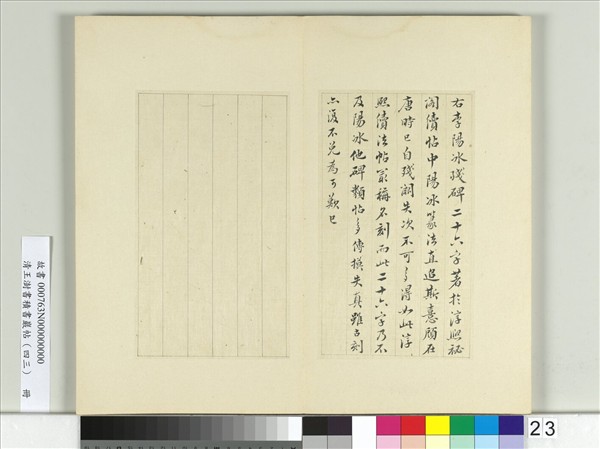 右李陽冰殘碑二十六字著於淳熙祕
閣續帖中陽冰篆法直追斯喜頤在
唐時已自殘闕失次不可多得如此淳
熙續法帖最稱名刻而此二十六字乃不
及陽冰他碑類帖多傳摸失真雖古刻
亦復不免為可歎已
故書000763N000000000
清王澍書積書巖帖(四三) 冊
23